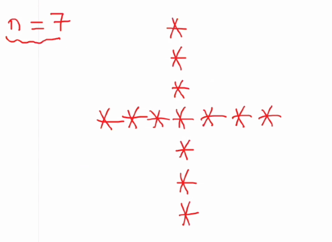 n = 7
*
*
*
* * * * * * *
*
*
*